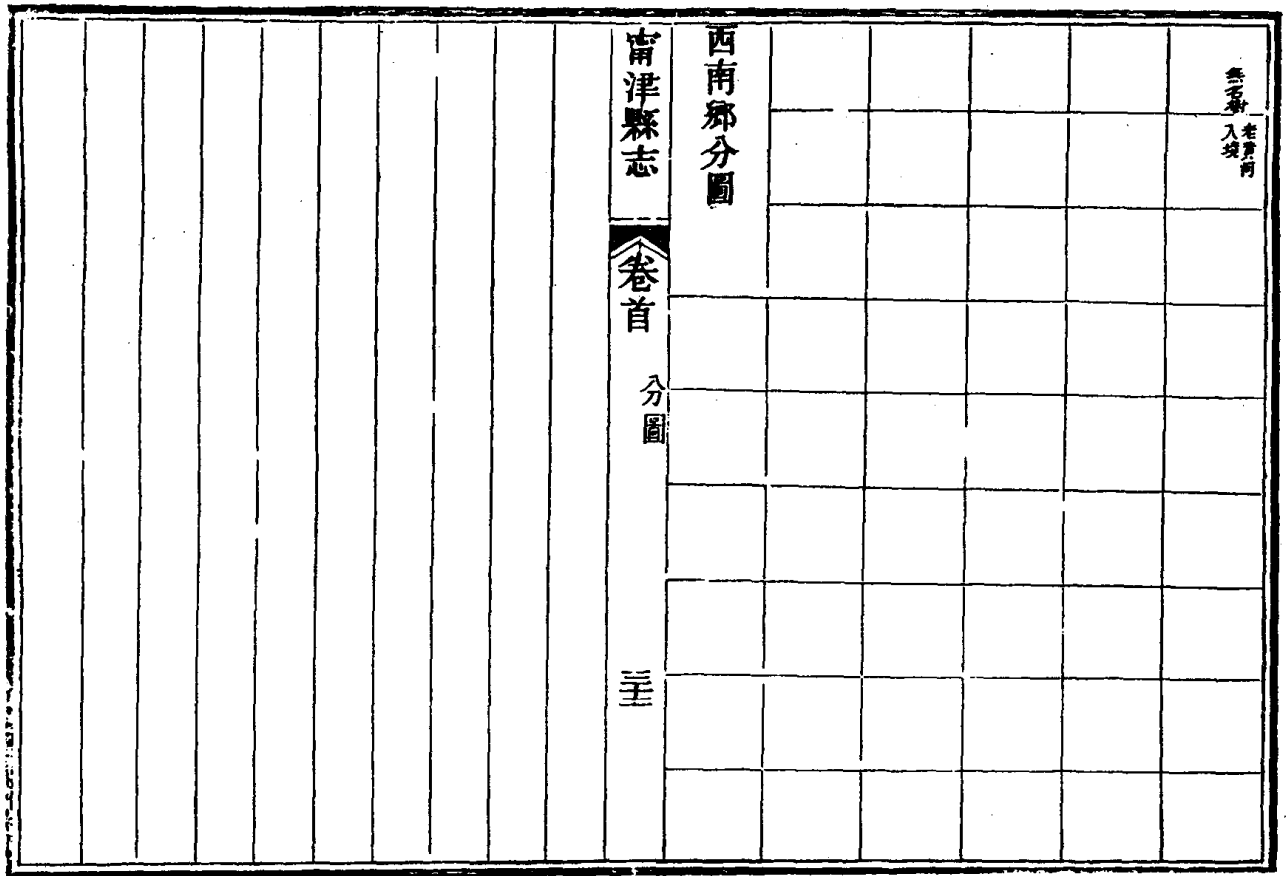 無名樹
老黃河
入境
西南鄉分圖
甯津縣志
卷首
分圖